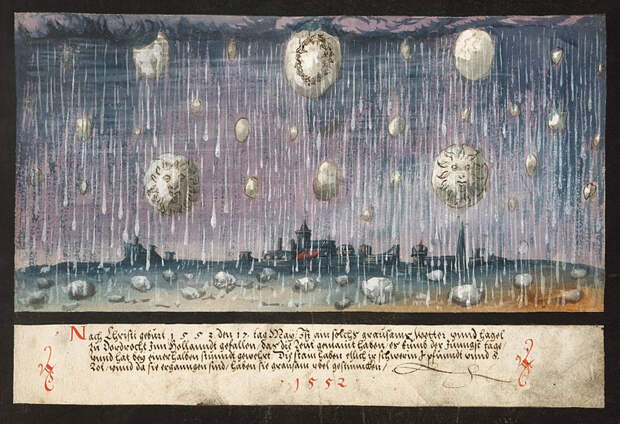 Nach Christi gebúrt 1552 den 17 tag May Ist ain solchs graúsams Wetter vnnd hagel
zú Dordrecht Inn Hollanndt gefallen, das die Leút gemaint haben, es kúm der Júngst tage
vnnd hat beÿ einer halben stúnndt geweret. Die stain haben etlich pfúndt vnnd 8.
Lot, vnnd da sie zerganngen sind, haben sie graúsam vbel gestúnncken /
1552